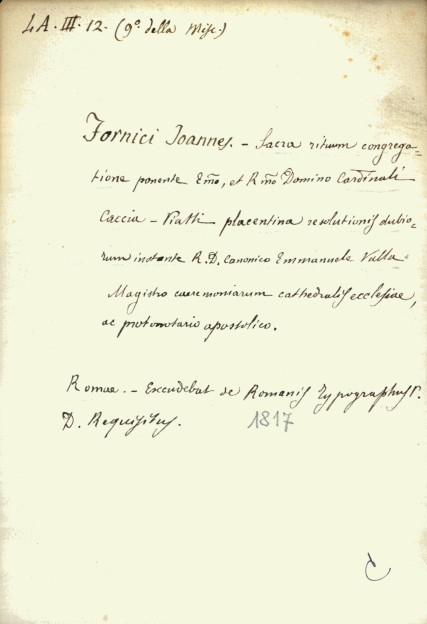 LA. III. 12. (9º. della Misc.)
Fornici Joannes. - Sacra rituum congrega-
tione ponente Emo, et Rmo Domino Cardinali
Caccia - Piatti placentina resolutionis dubio-
rum instante R. D. canonico Emmanuele Vulla
Magistro caeremoniarum cathedralis ecclesiae,
ac protonotario apostolico.
Romae. - Excudebat de Romanis Typographus P.
D. Requisitus.
1817